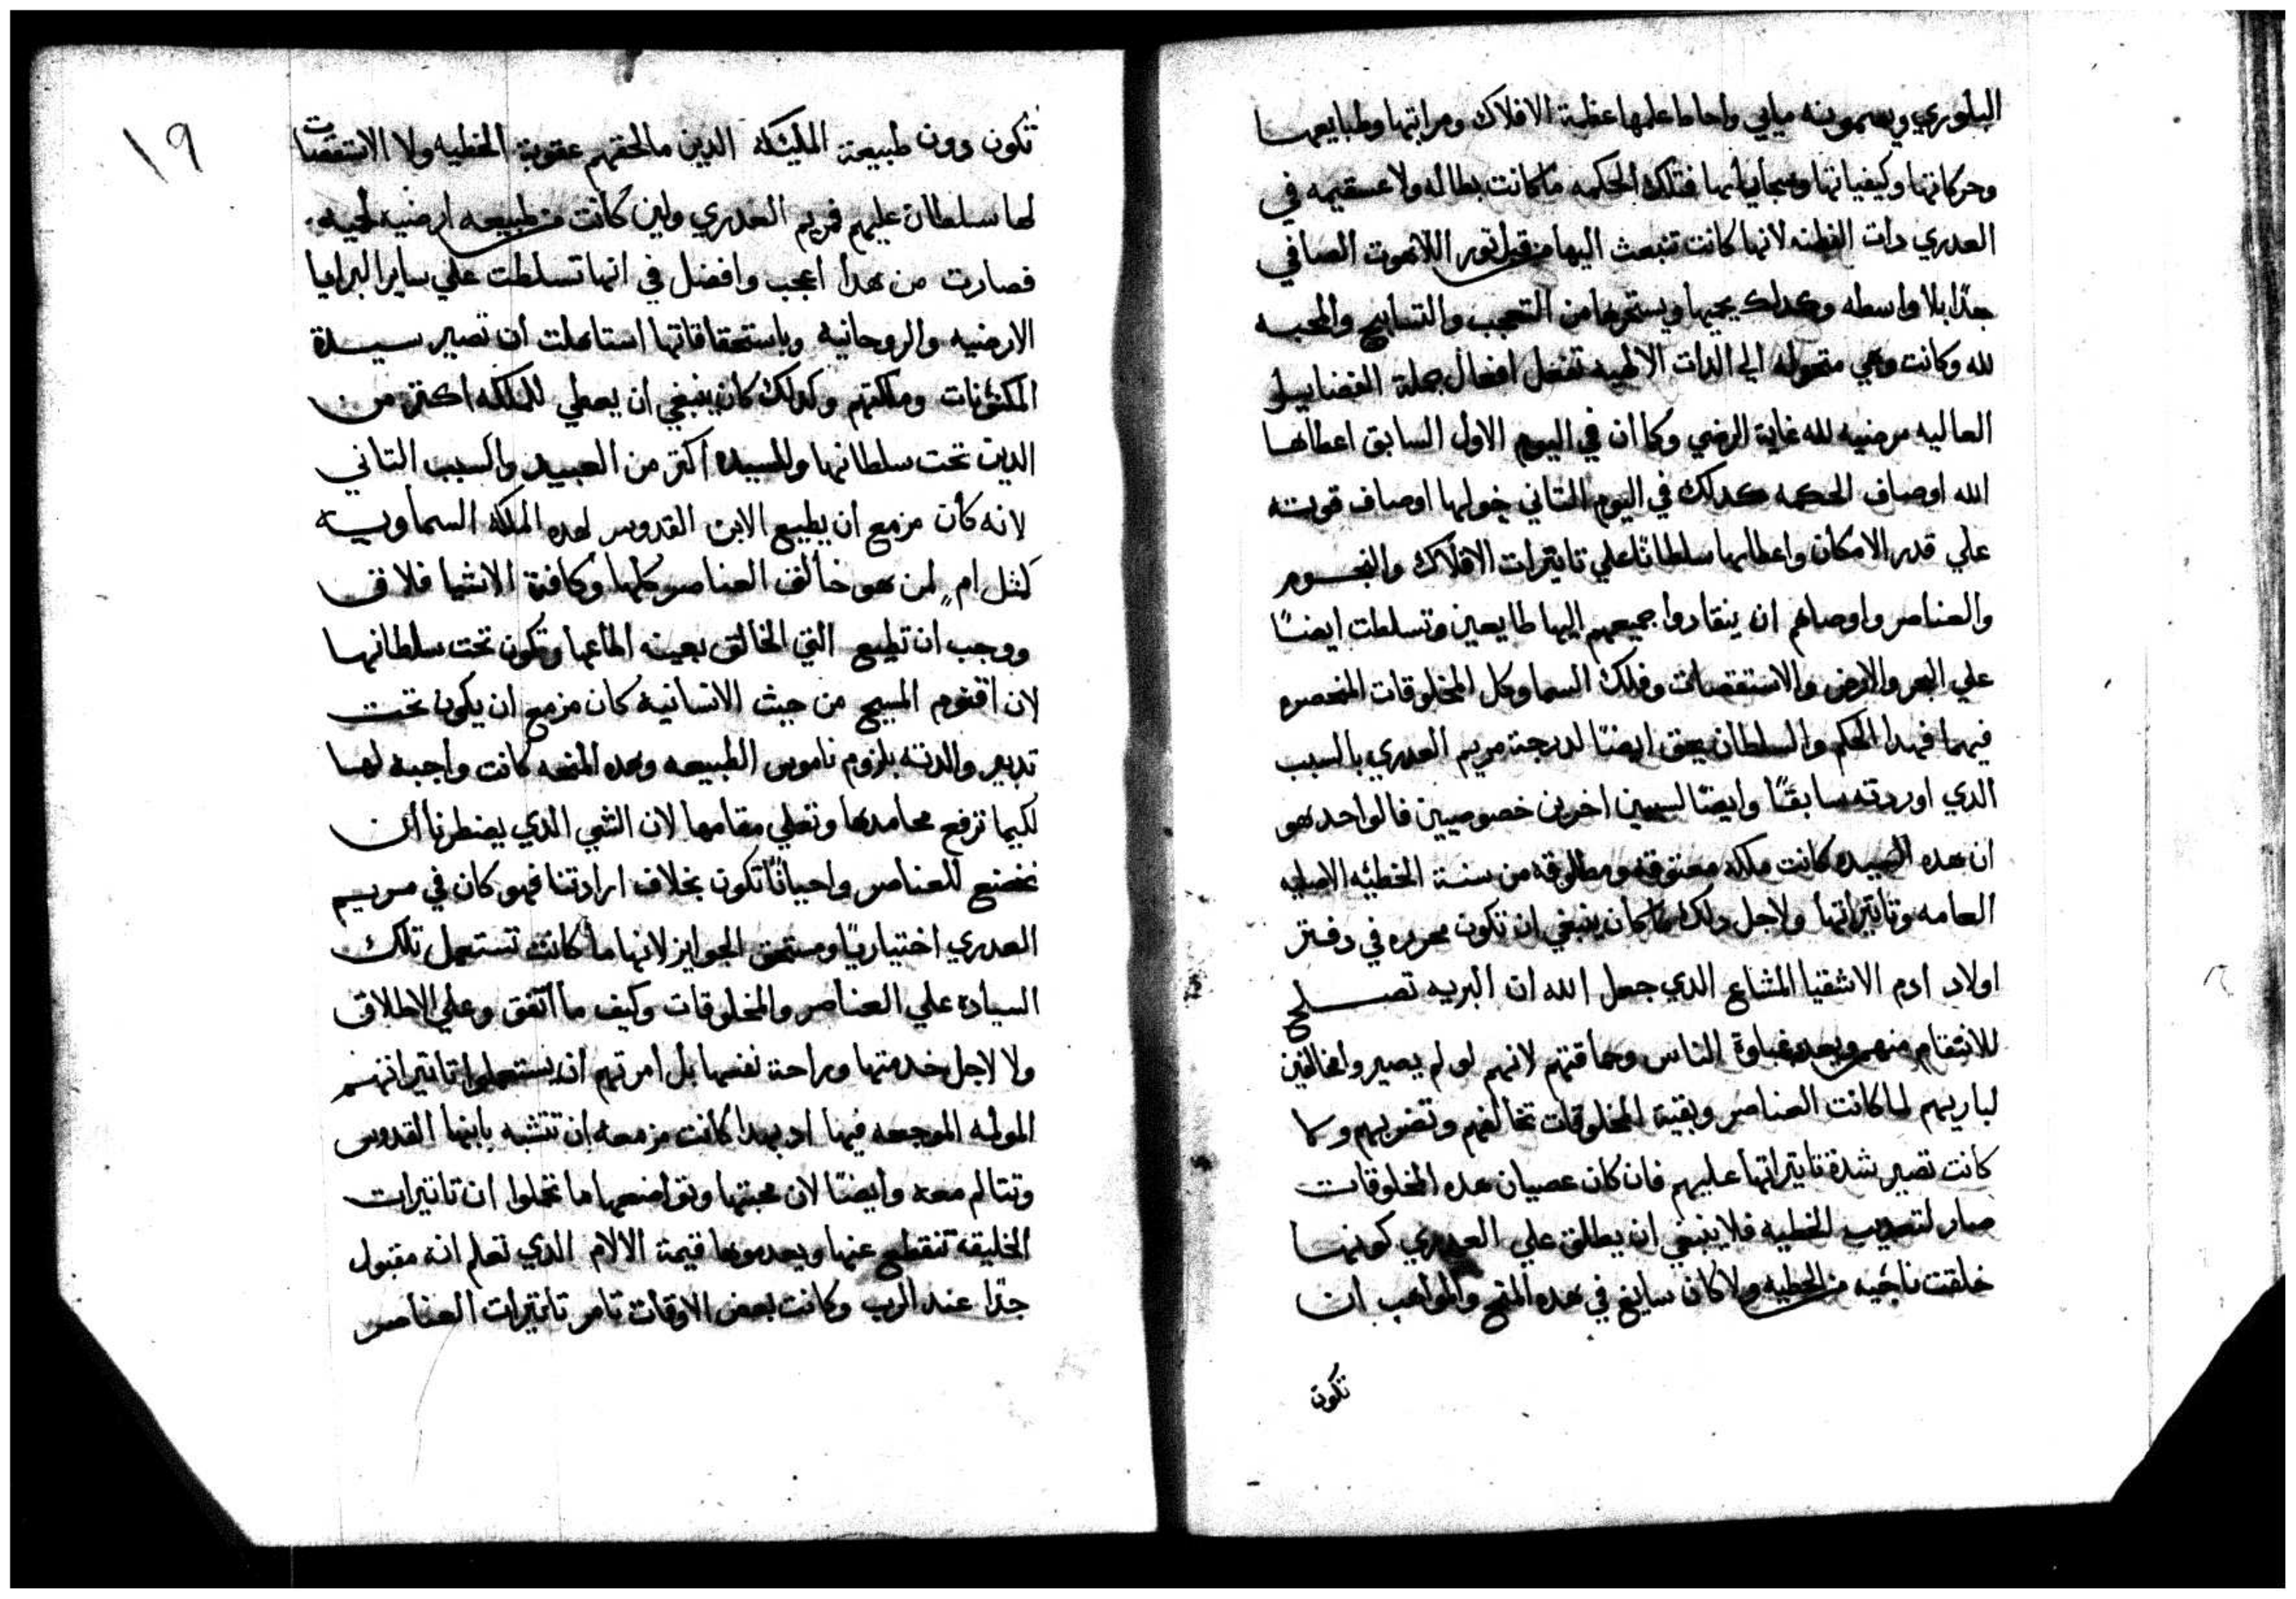 البلوري ويسمونه مايي واحاط علمها عظمة الافلاك ومراتبها وطبايعها
وحركاتها وكيفياتها وسجاياتها فتلك الحكمه ما كانت بطاله ولا عسقيمه في
العدري دات الفطنه لانها كانت تنبعث اليها من قبل نور اللاهوت الصافي
جدًا بلا واسطه وكدلك يحيها ويستحرها من التعجب والتسابيح والمحبه
لله وكانت وهي متحوله الي الدات الالهيه تفعل افعال جملة الفضايل
العاليه مرضيه لله غاية الرضي وكما ان في اليوم الاول السابق اعطاها
الله اوصاف الحكمه كدلك في اليوم التاني خولها اوصاف قوته
علي قدر الامكان واعطاها سلطانًا علي تاتيرات الافلاك والنجوم
والعناصر واوصاهم ان ينقادوا جميعهم اليها طايعين وتسلطت ايضًا
علي البحر والارض والاستقصات وفلك السما وكل المخلوقات المنحصره
فيهما فهدا الحكم والسلطان يحق ايضًا لدرجة مريم العدري بالسبب
الدي اوردته سابقًا وايضًا لسببين اخرين خصوصيين فالواحد هو
ان هده السيده كانت ملكه معتوقه ومطلوقه من سنة الخطئه الاصليه
العامه وتاتيراتها ولاجل دلك ما كان ينبغي ان تكون محرره في دفتر
اولاد ادم الاشقيا المشاع الدي جعل الله ان البريه تصلح
للانتقام منهم وبعده غباوة الناس وحماقتهم لانهم لو لم يصيروا مخالفين
لباريهم لما كانت العناصر وبقية المخلوقات تخالفهم وتضربهم وما
كانت تصير شدة تاتيراتها عليهم فان كان عصيان هده المخلوقات
صار لتعديب الخطيه فلا ينبغي ان يطلق علي العدري كونها
خلقت ناجيه من الخطيه ولا كان سايغ في هده المنح والمواهب ان
تكون
١٩
تكون دون طبيعة المليكه الدين ما لحقتهم عقوبة الخطيه ولا الاستقصات
لها سلطان عليهم فمريم العدري ولين كانت من طبيعه ارضيه لحيه
فصارت من هدا اعجب وافضل في انها تسلطت علي ساير البرايا
الارضيه والروحانيه وباستحقاقاتها استاهلت ان تصير سيدة
المكنونات وملكتهم ولدلك كان ينبغي ان يعطي للملكه اكتر من
الدين تحت سلطانها وللسيده اكتر من العبيد والسبب التاني
لانه كان مزمع ان يطيع الابن القدوس لهده الملكه السماويه
كمثل ام لمن هو خالق العناصر كلها وكافة الاشيا فلاق
ووجب ان تطيع التي الخالق بعينه اطاعها وتكون تحت سلطانها
لان اقنوم المسيح من حيث الانسانيه كان مزمع ان يكون تحت
تدبير والدته بلزوم ناموس الطبيعه وهده المنحه كانت واجبه لها
لكيما ترفع محامدها وتعلي مقامها لان الشي الدي يضطرنا ان
نخضع للعناصر واحيانًا تكون بخلاف ارادتنا فهو كان في مريم
العدري اختياريًا ومستحق الجوايز لانها ما كانت تستعمل تلك
السياده علي العناصر والمخلوقات وكيف ما اتفق وعلي الاطلاق
ولا لاجل خدمتها وراحة نفسها بل امرتهم ان يستعملوا تاتيراتهم
المولمه الموجعه فيها اد بهدا كانت مزمعه ان تتشبه بابنها القدوس
وتتالم معه وايضًا لان محبتها وتواضعها ما تحملوا ان تاتيرات
الخليقه تنقطع عنها ويعدموها قيمة الالام الدي تعلم انه مقبول
جدًا عند الرب وكانت بعض الاوقات تامر تاتيرات العناصر